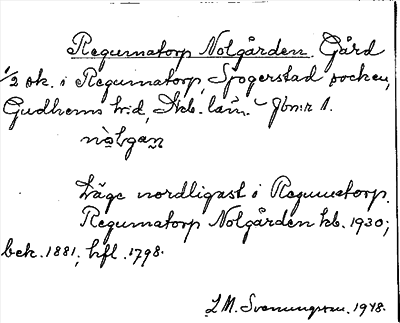 Regumatorp Nolgården. Gård
1/2 sk. i Regumatorp, Sjogerstad socken,
Gudhems hd, Skb. län. Jbnr 1.
nòlgan
Läge nordligast i Regumatorp.
Regumatorp Nolgården kb. 1930;
bek. 1881; hfl. 1798.
L M. Svenungsson. 1948.